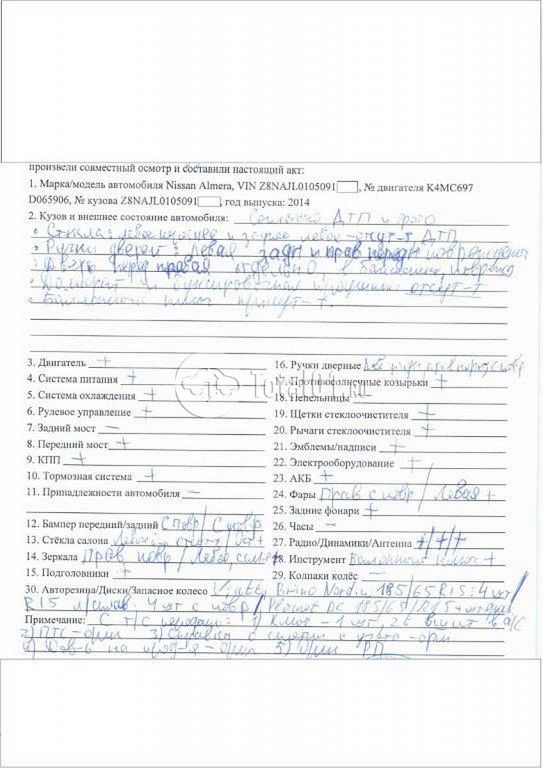 произвели совместный осмотр и составили настоящий акт:
1. Марка/модель автомобиля Nissan Almera, VIN Z8NAJL0105091, № двигателя K4MC697
D065906, № кузова Z8NAJL0105091, год выпуска: 2014
2. Кузов и внешнее состояние автомобиля: Согласно ДТП и фото
• Стекла: левое переднее и заднее левое - отсут-т ДТП
• Ручки дверей: левая задн и прав перед повреждены
• Дверь перед правая отдельно, в багажнике, поврежд
• Домкрат и буксировочная проушина отсут-т
• Баллонный ключ присут-т.
3. Двигатель +
4. Система питания +
5. Система охлаждения +
6. Рулевое управление +
7. Задний мост —
8. Передний мост +
9. КПП +
10. Тормозная система +
11. Принадлежности автомобиля —
12. Бампер передний/задний С повр / С повр
13. Стёкла салона
14. Зеркала Прав повр / Левое
15. Подголовники +
16. Ручки дверные
17. Противосолнечные козырьки +
18. Пепельницы
19. Щетки стеклоочистителя +
20. Рычаги стеклоочистителя +
21. Эмблемы/надписи +
22. Электрооборудование +
23. АКБ +
24. Фары Прав с повр / Левая +
25. Задние фонари +
26. Часы —
27. Радио/Динамики/Антенна +/+/+
28. Инструмент Балонный ключ +
29. Колпаки колёс —
30. Авторезина/Диски/Запасное колесо Viatti Brina Nordic 185/65 R15: 4шт/
R15 л/сплав. 4 шт с повр /
Примечание: С т/с передано: 1) Ключ - 1 шт,
2) ПТС - ориг 3) Справка о снятии с учета - ориг
4) Дов-ть на 5)
Total01.ru